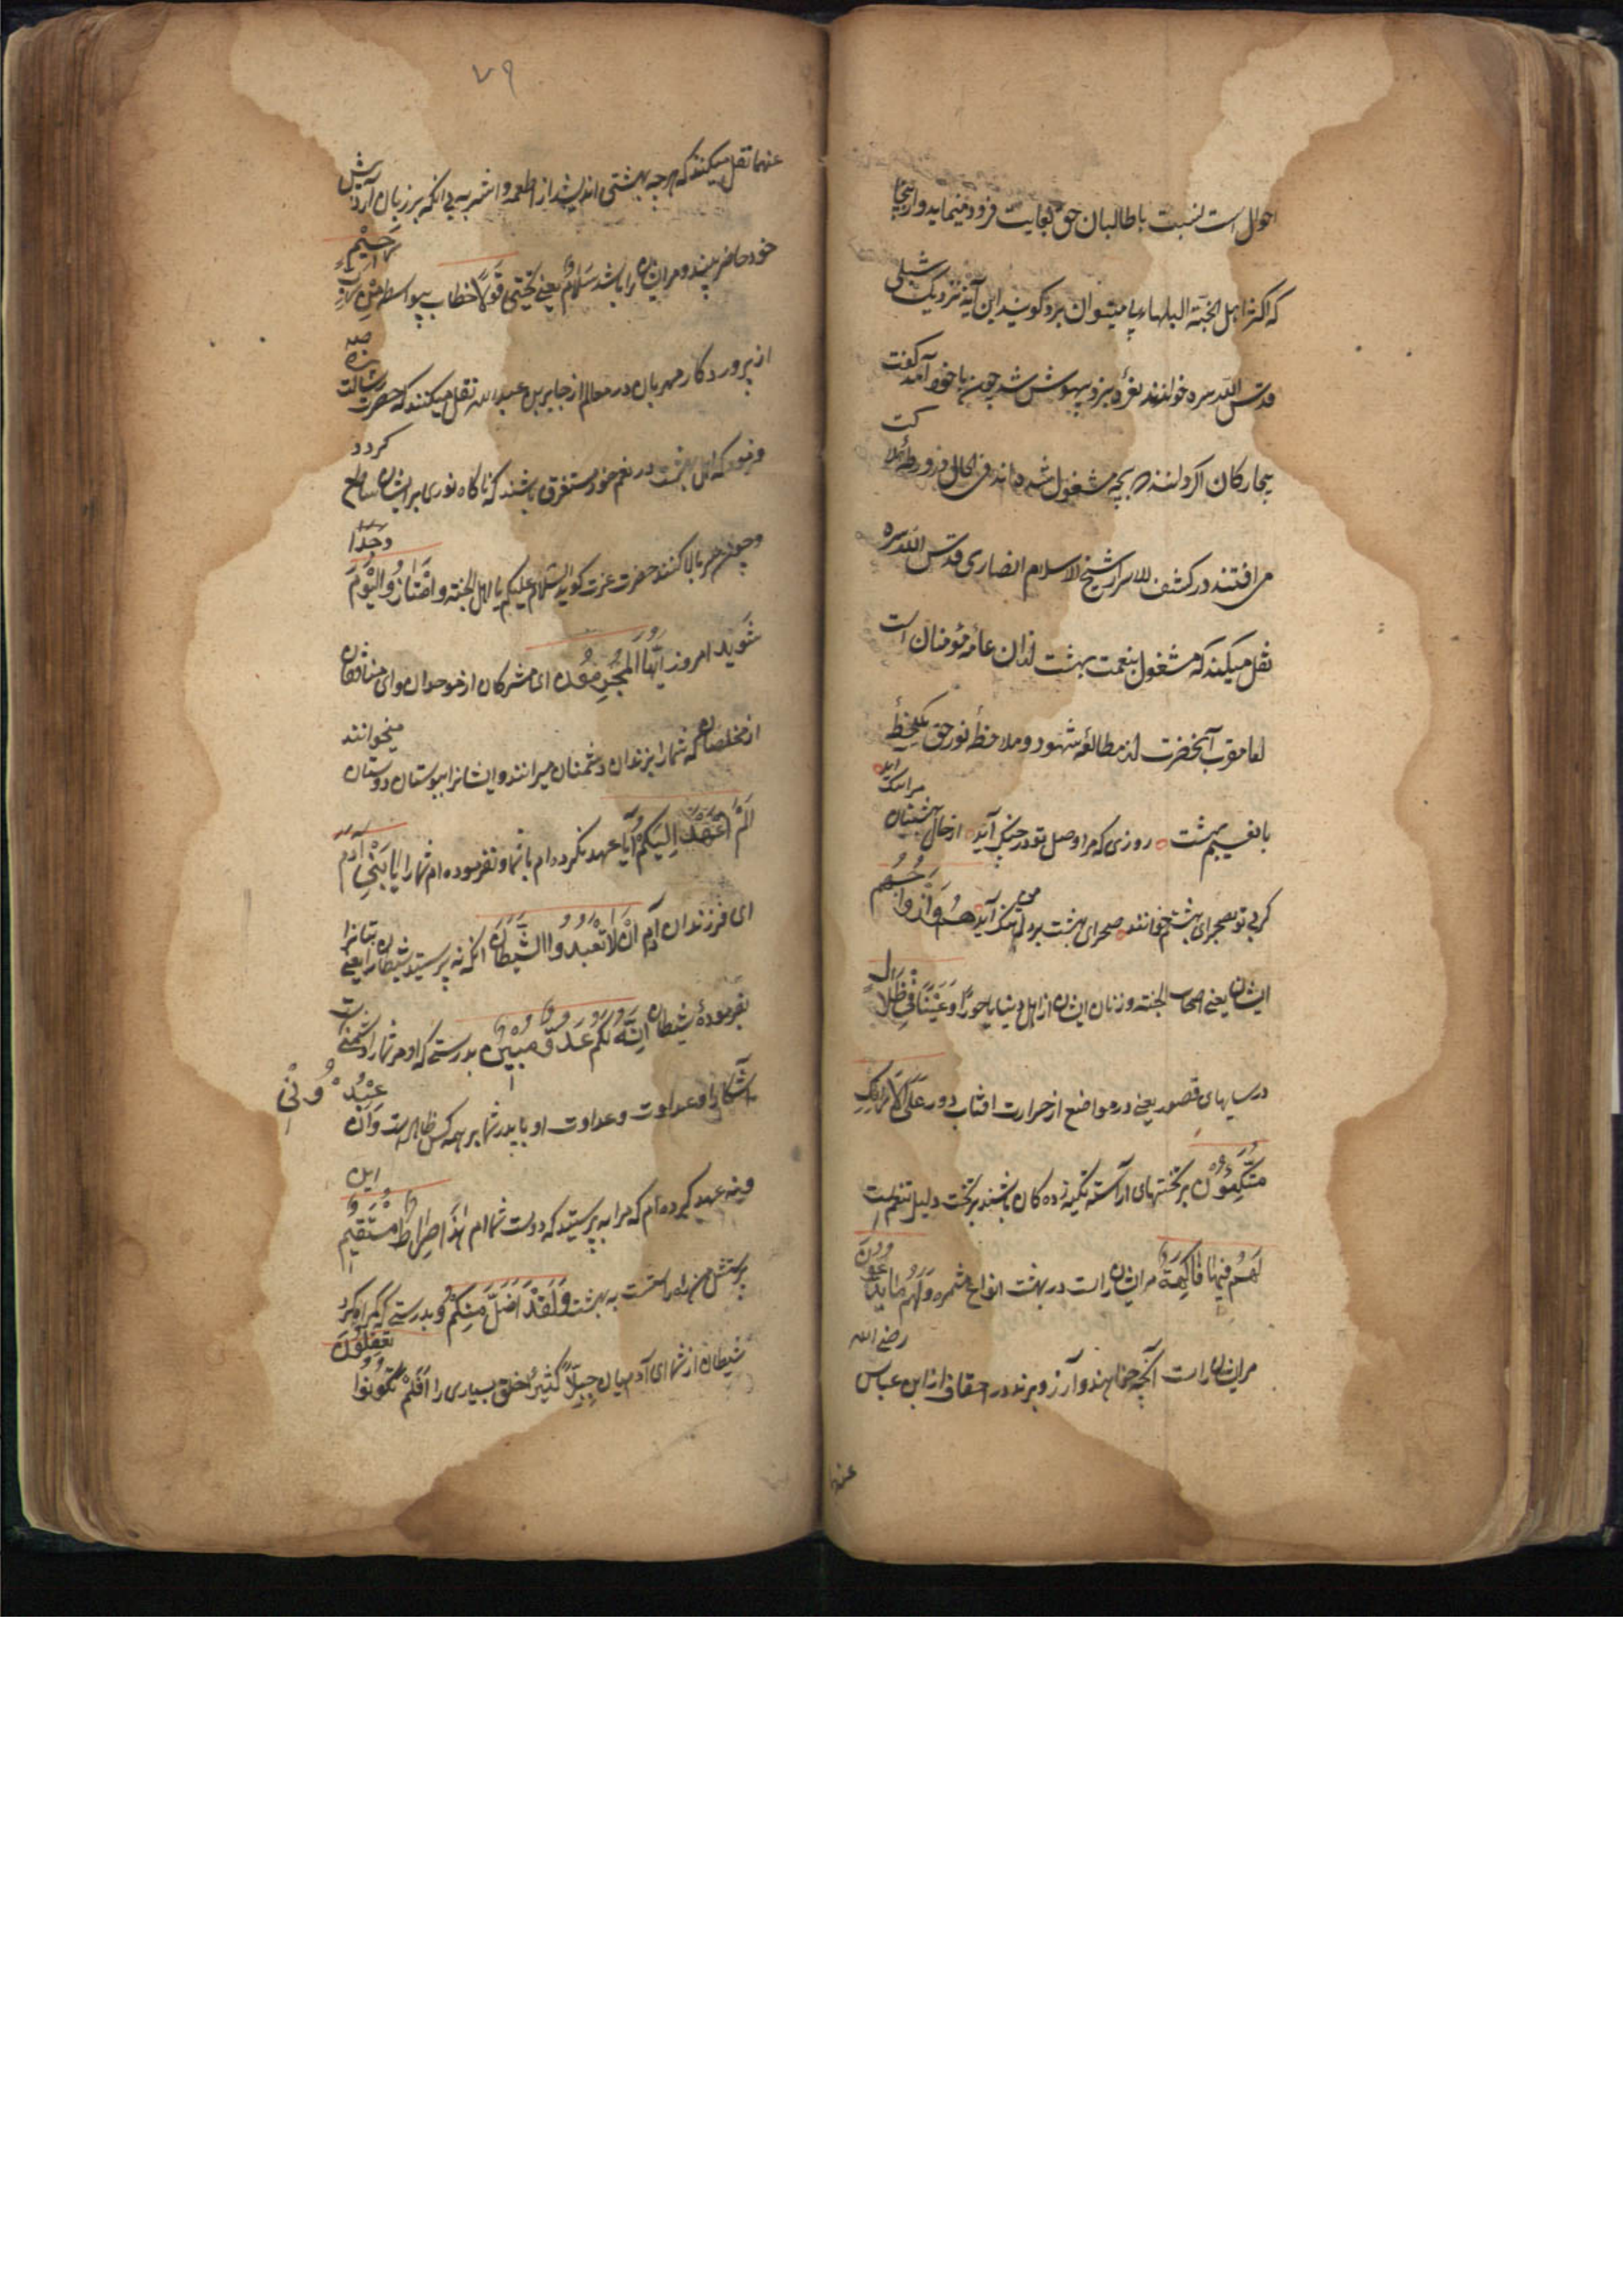 احوال است نسبت با طالبان حق بغایت فرود مینماید و ازینجا
که اکثر اهل الجنة البلهاء پی میتوان برد گویند این آیة نزدیک شبلی
قدس الله سره خواندند نعره بزد و بیهوش شد چون با خود آمد گفت
بیچارکان اگر دانند که بچه مشغول شده‌اند فی الحال در ورطه هلاکت
می افتند در کشف الاسرار شیخ الاسلام انصاری قدس الله سره
نقل میکند که مشغول بنعمت بهشت ازان عامه مؤمنان است
اما مقرب آنحضرت از مطالعه شهود و ملاحظه نور حق یکلحظه
با نعیم بهشت روزی که مرا وصل تو در چنگ آید از حال بهشتیان مرا ننگ آید
کر بی تو بصحرای بهشتم خوانند صحرای بهشت بر دلم تنگ آید هُم وَاَزْوَاجُهُم
ایشان یعنی اصحاب الجنته و زنان ایشان از اهل دنیا یا حورًا وَعَیْنًا فِی ظِلَالٍ
در سایهای قصور یعنی در مواضع از حرارت افتاب دور عَلَی الْاَرَائِکِ
مُتَّکِئُونَ بر تختهای آراسته تکیه زده کان باشند بر تخت دلیل تنعم است
لَهُمْ فِیهَا فَاکِهَةٌ مر ایشان راست در بهشت انواع مثمره وَلَهُمْ مَا یَدَّعُونَ
مر ایشان راست آنچه خواهند و آرزو برند در احقاف از ابن عباس رضی الله
عنهما
۷۹
عنهما نقل میکنند که هر چه بهشتی اندیشد از اطعمه و اشربه بی انکه بر زبان آرد پیش
خود حاضر بیند و مر ایشان را باشد سَلَامٌ یعنی تحیتی قَوْلًا خطاب بیواسطه مِنْ رَبٍّ رَحِیمٍ
از پروردکار مهربان در معالم از جابر بن عبد الله نقل میکنند که حضرت رسالت
فرمود که اهل بهشت در نعیم خود مستغرق باشند که ناکاه نوری بر ایشان ساطع کردد
و چون سر بالا کنند حضرت عزت کوید السلام علیکم یا اهل الجنته وَامْتَازُوا الْیَوْمَ و جدا
شوید امروز اَیُّهَا الْمُجْرِمُونَ ای مشرکان از موحدان و ای منافقان
از مخلصان که شما را بزندان دشمنان میرانند و ایشانرا ببوستان دوستان میخوانند
اَلَمْ اَعْهَدْ اِلَیْکُمْ آیا عهد نکرده‌ام با شما و نفرموده‌ام شما را یَا بَنِی آدَمَ
ای فرزندان آدم اَنْ لَا تَعْبُدُوا الشَّیْطَانَ انکه نه پرستید شیطان را یعنی بتانرا
بفرموده شیطان اِنَّهُ لَکُمْ عَدُوٌّ مُبِینٌ بدرستی که او مر شما را دشمنی است
آشکارا عداوت و عداوت او با پدر شما بر همه کس ظاهر است وَاَنِ اعْبُدُونِی
و نه عهد کرده‌ام که مرا به پرستید که دوست شما ام هَذَا صِرَاطٌ مُسْتَقِیمٌ این
پرستش من راه راستست به بهشت وَلَقَدْ اَضَلَّ مِنْکُمْ و بدرستی که گمراه کرد
شیطان از شما ای آدمیان جِبِلًّا کَثِیرًا خلق بسیاری را اَفَلَمْ تَکُونُوا تَعْقِلُونَ